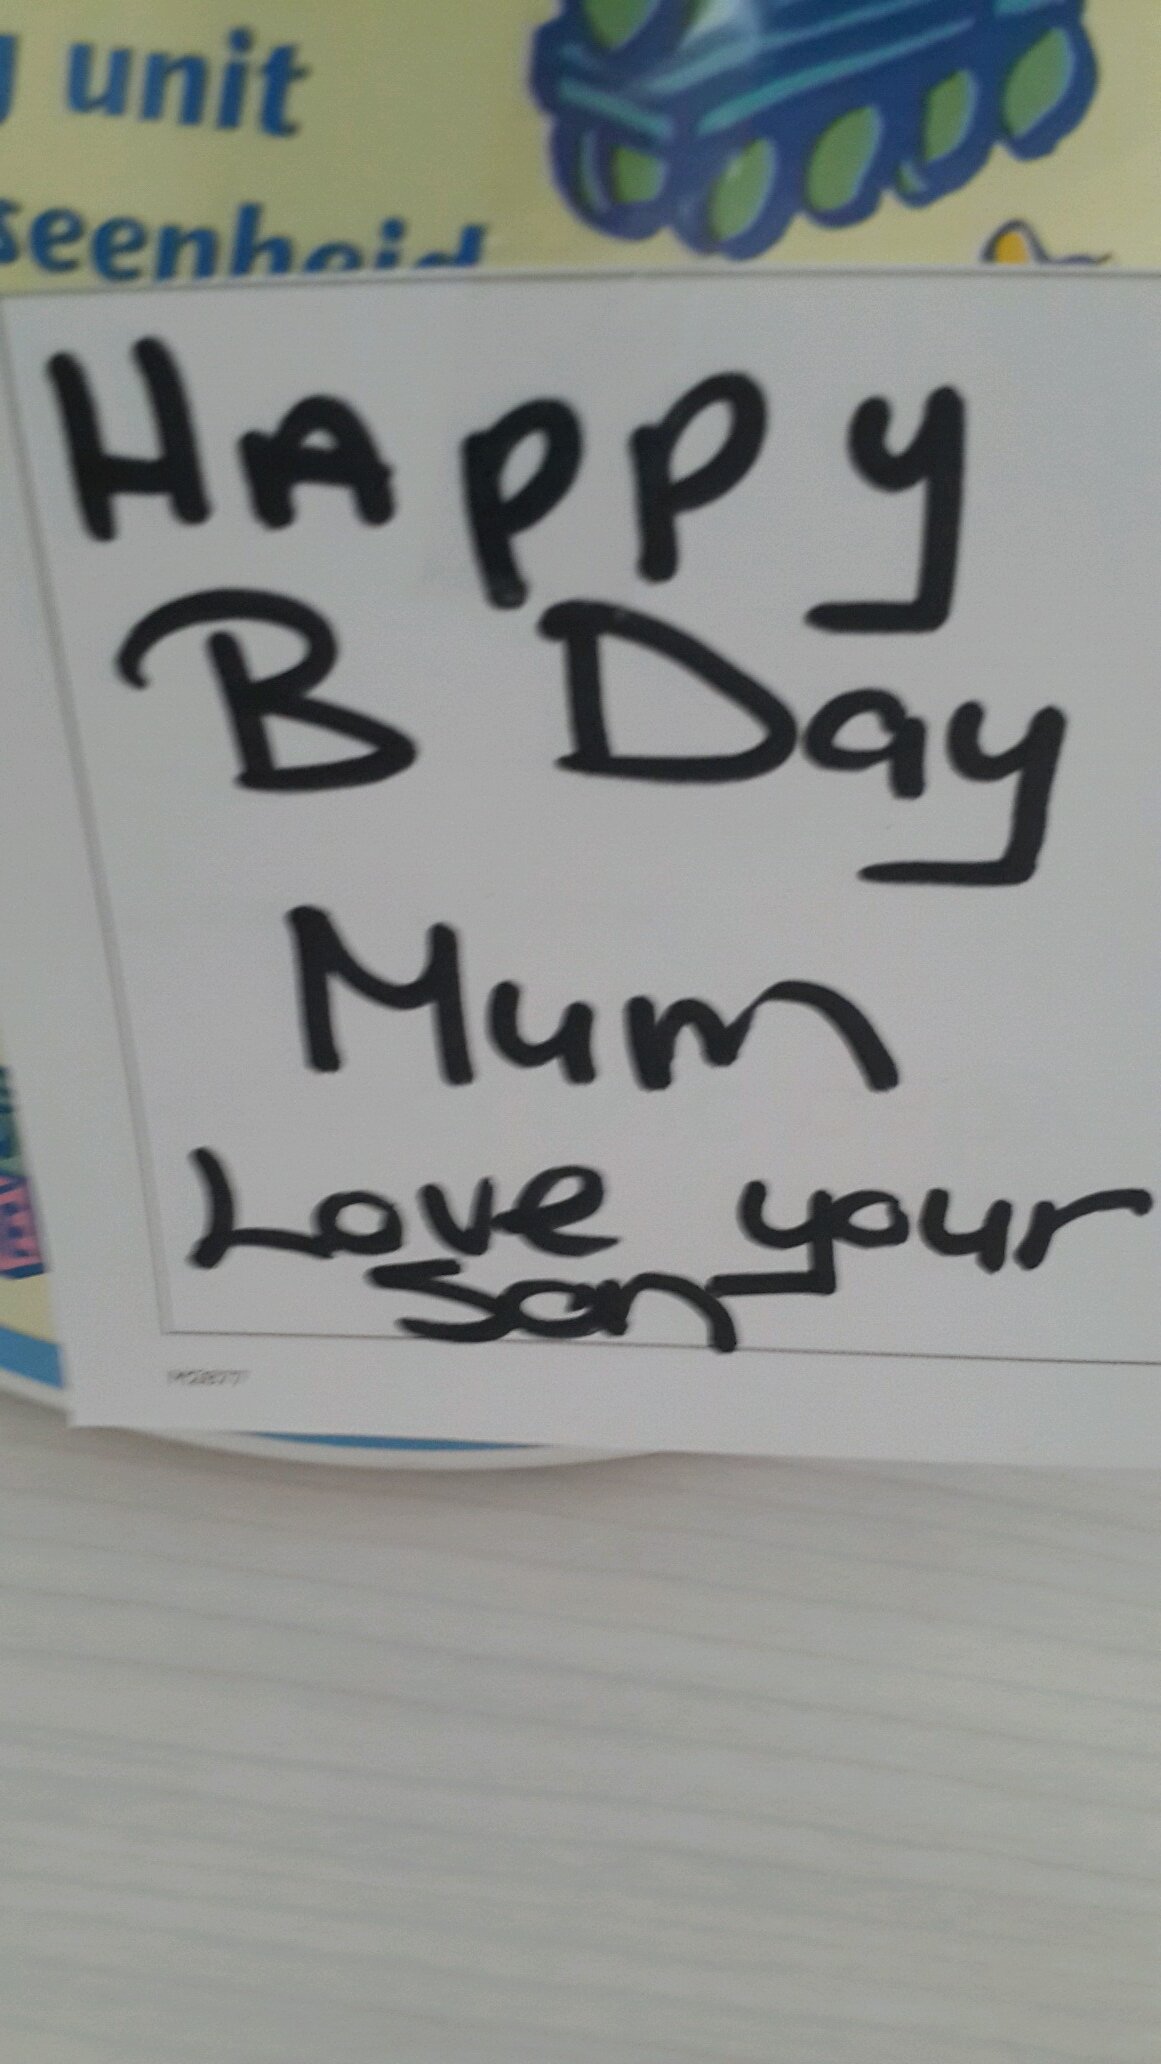 unit
seenheid
HAppy
B Day
Mum
Love your
son